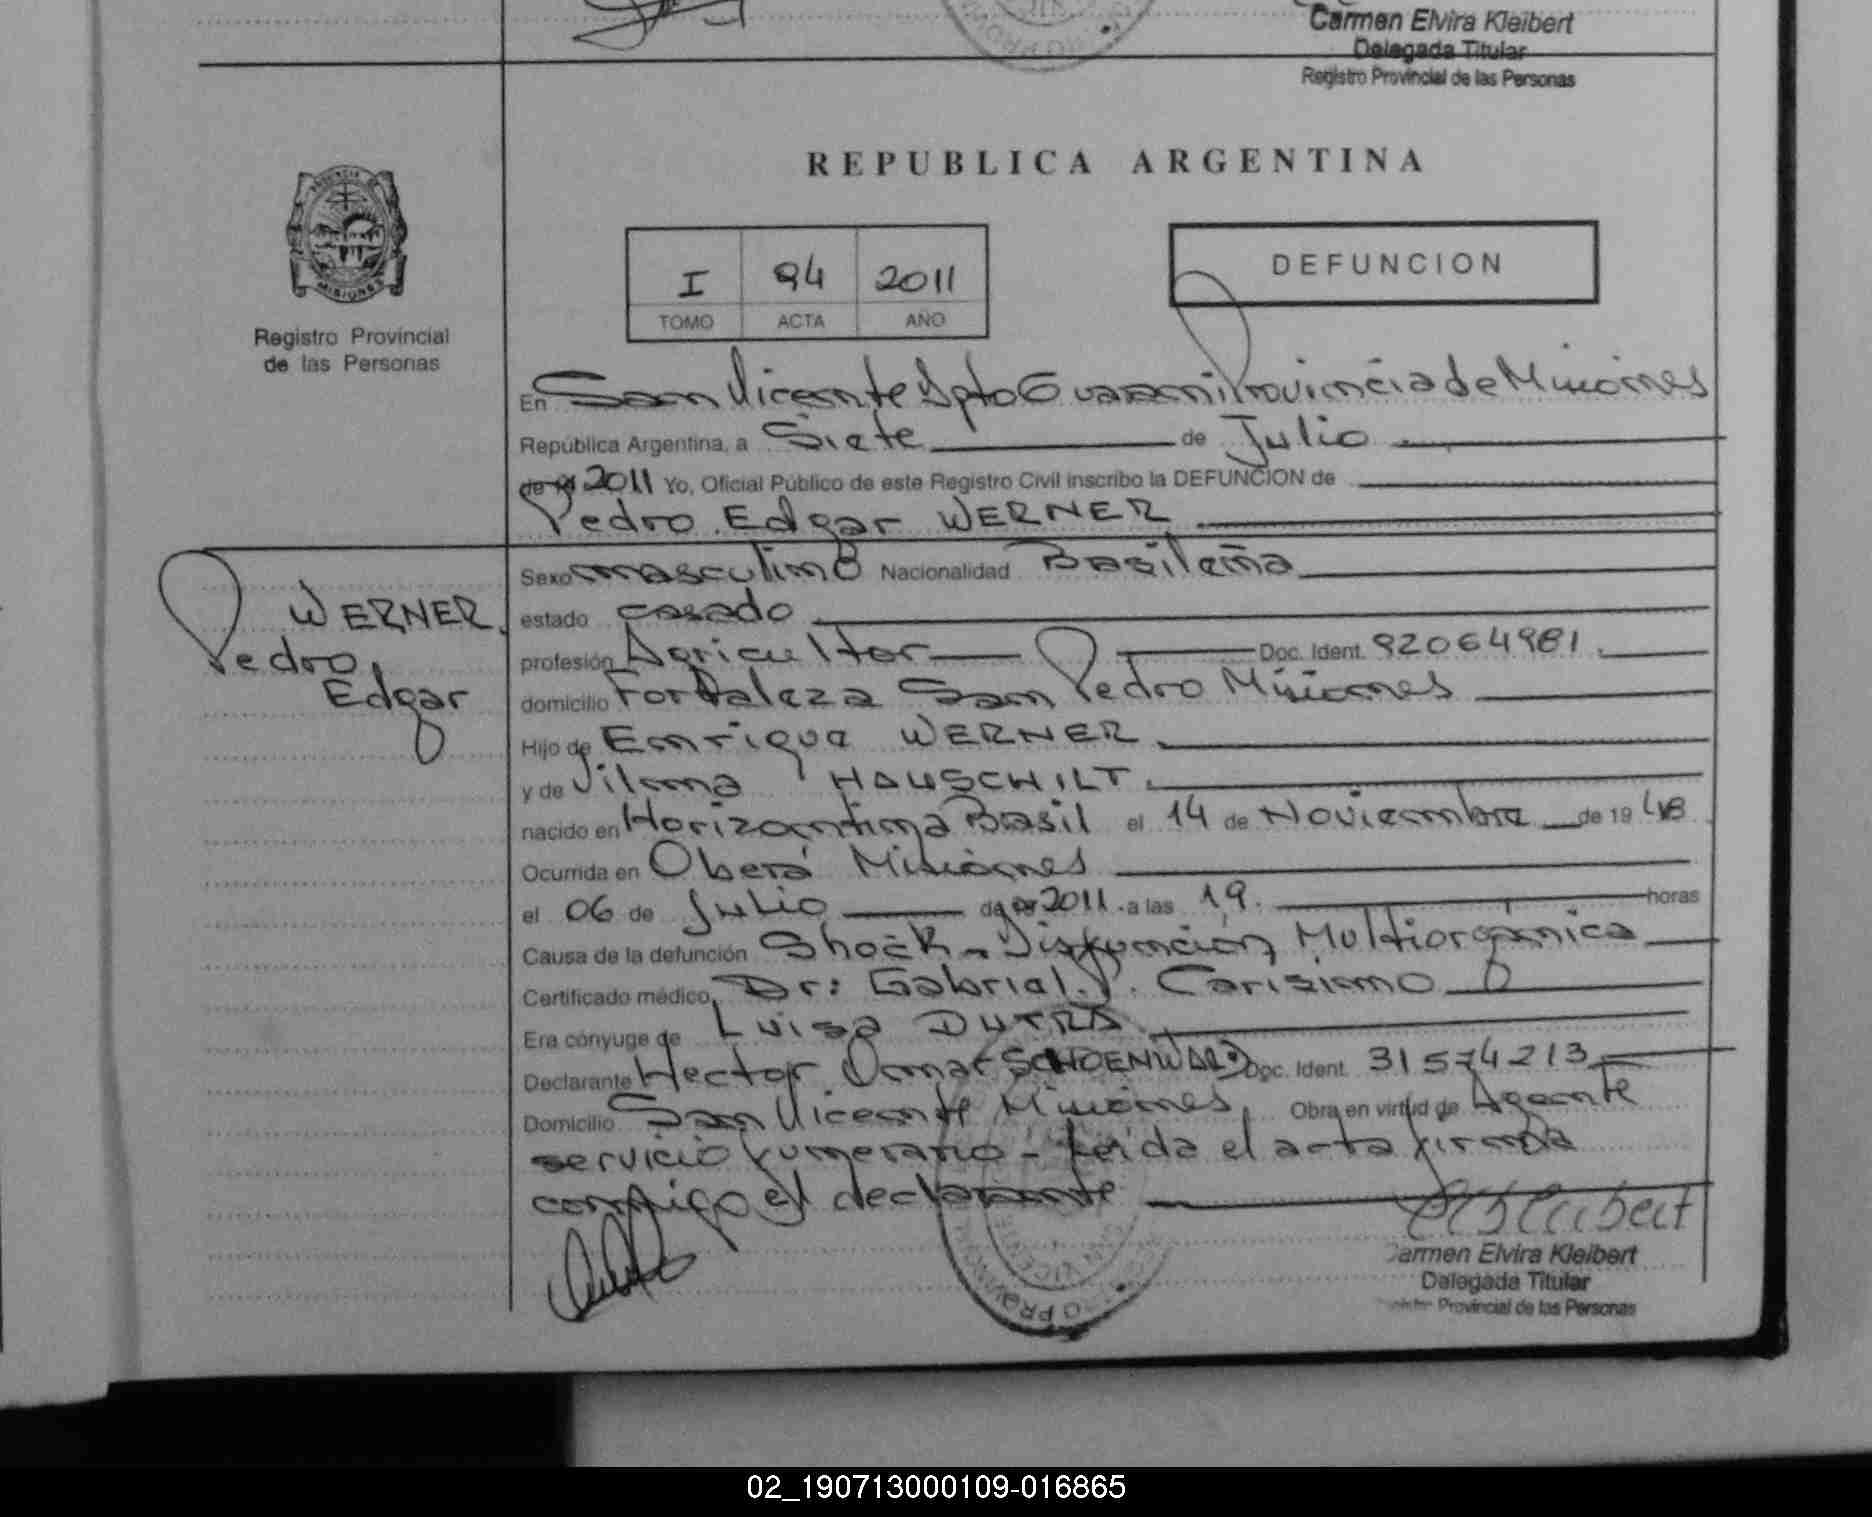 Carmen Elvira Kleibert
Delegada Titular
Registro Provincial de las Personas
REPUBLICA ARGENTINA
PROVINCIA DE
MISIONES
Registro Provincial
de las Personas
I 94 2011
TOMO ACTA AÑO
DEFUNCION
En San Vicente Dpto Guarani Provincia de Misiones
República Argentina, a Siete de Julio
de 19 2011 Yo, Oficial Público de este Registro Civil inscribo la DEFUNCION de
Pedro Edgar WERNER
WERNER,
Pedro,
Edgar
Sexo masculino Nacionalidad Brasileña
estado casado
profesión Agricultor Doc. Ident. 92064981
domicilio Fortaleza San Pedro Misiones
Hijo de Enrique WERNER
y de Vilma HAUSCHILT
nacido en Horizontina Brasil el 14 de Noviembre de 19 48
Ocurrida en Oberá Misiones
el 06 de Julio de 19 2011 a las 19. horas
Causa de la defunción Shock - Disfunción Multiorgánica
Certificado médico Dr: Gabriel. P. Carisimo
Era cónyuge de Luisa DUTRA
Declarante Hector Omar SCHOENWALD Doc. Ident. 31574213
Domicilio San Vicente Misiones, Obra en virtud de Agente
servicio funerario - Leida el acta firma
conmigo el declarante
Carmen Elvira Kleibert
Delegada Titular
Registro Provincial de las Personas
02_190713000109-016865